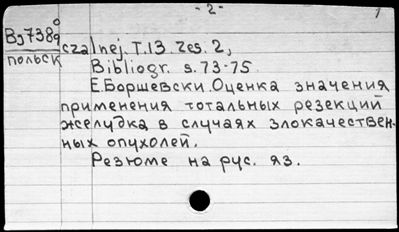 - 2 -
Вј738д czalnej. T.13. Zes. 2,
польск Bibliogr. s. 73-75.
Е.Боршевски. Оценка значения
применения тотальных резекций
желудка в случаях злокачествен-
ных опухолей.
Резюме на рус. яз.